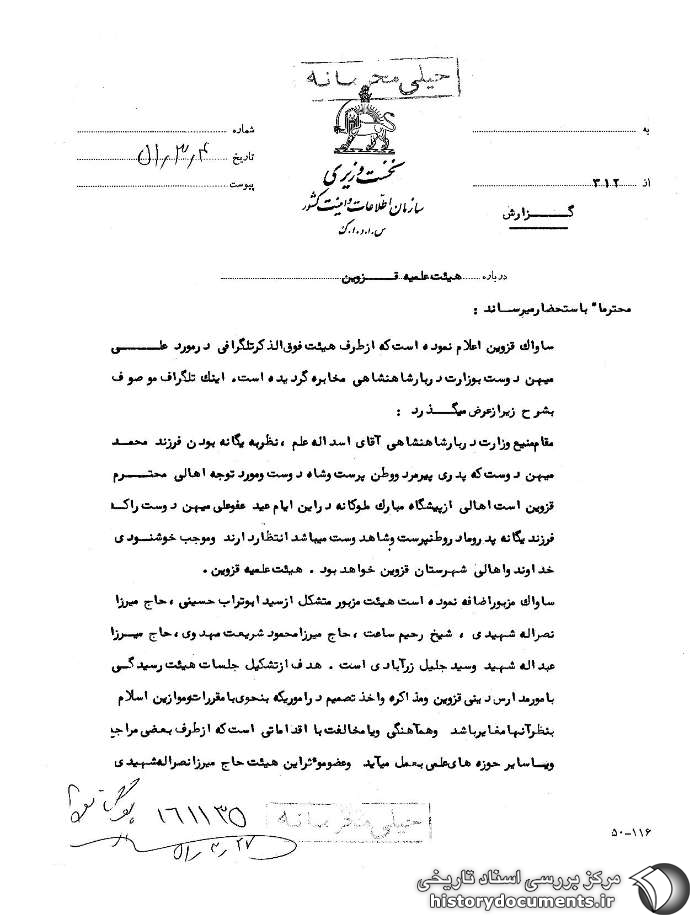 خیلی محرمانه
به
شماره
تاریخ ۵۱٫۳٫۴
پیوست
از ۳۱۲
نخست وزیری
سازمان اطلاعات و امنیت کشور
س.ا.و.ا.ک
گزارش
درباره هیئت علمیه قزوین
محترماً باستحضار میرساند :
ساواک قزوین اعلام نموده است که از طرف هیئت فوق الذکر تلگرافی در مورد علی
میهن دوست بوزارت دربار شاهنشاهی مخابره گردیده است. اینک تلگراف موصوف
بشرح زیر از عرض میگذرد :
مقام منیع وزارت دربار شاهنشاهی آقای اسداله علم ، نظربه یگانه بودن فرزند محمد
میهن دوست که پدری پیرمرد ووطن پرست وشاه دوست ومورد توجه اهالی محترم
قزوین است اهالی ازپیشگاه مبارک ملوکانه در این ایام عید عفوعلی میهن دوست راکه
فرزند یگانه پدرومادر وطنپرست وشاهدوست میباشد انتظاردارند وموجب خوشنودی
خداوند واهالی شهرستان قزوین خواهد بود . هیئت علمیه قزوین .
ساواک مزبوراضافه نموده است هیئت مزبور متشکل ازسید ابوتراب حسینی ، حاج میرزا
نصراله شهیدی ، شیخ رحیم ساعت ، حاج میرزامحمود شریعت مهدوی ، حاج میرزا
عبداله شهید وسید جلیل زرآبادی است . هدف ازتشکیل جلسات هیئت رسیدگی
بامورمدارس دینی قزوین ومذاکره واخذ تصمیم دراموریکه بنحوی بامقررات وموازین اسلام
بنظرآنها مغایرباشد وهمآهنگی ویامخالفت با اقداماتی است که ازطرف بعضی مراجع
ویاسایر حوزه های علمی بعمل میآید وعضوموثراین هیئت حاج میرزا نصراله شهیدی
۱۶۱۱۳۵
۵۱٫۳٫۲۷
خیلی محرمانه
۵۰-۱۱۶
مرکز بررسی اسناد تاریخی
historydocuments.ir